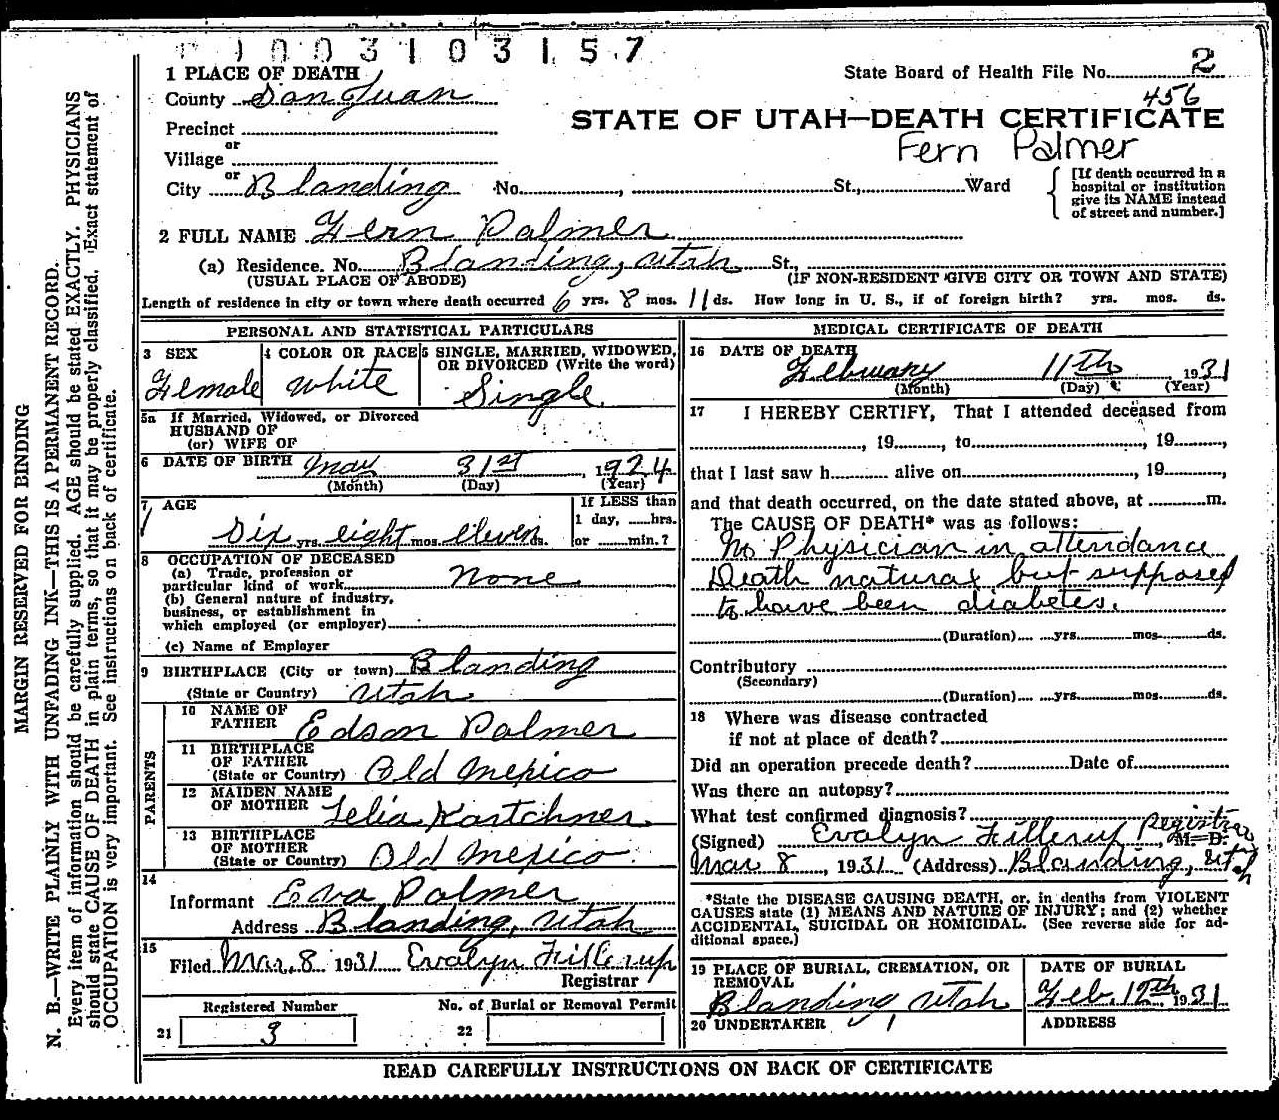 0 0 3 1 0 3 1 5 7
1 PLACE OF DEATH
State Board of Health File No. 2
County San Juan
456
STATE OF UTAH—DEATH CERTIFICATE
Precinct
or
Village
Fern Palmer
or
City Blanding No. , St., Ward
[If death occurred in a
hospital or institution
give its NAME instead
of street and number.]
2 FULL NAME Fern Palmer
(a) Residence. No. Blanding, Utah St.,
(USUAL PLACE OF ABODE) (IF NON-RESIDENT GIVE CITY OR TOWN AND STATE)
Length of residence in city or town where death occurred 6 yrs. 8 mos. 11 ds. How long in U. S., if of foreign birth? yrs. mos. ds.
PERSONAL AND STATISTICAL PARTICULARS
3 SEX
Female
4 COLOR OR RACE
White
5 SINGLE, MARRIED, WIDOWED,
OR DIVORCED (Write the word)
Single
5a If Married, Widowed, or Divorced
HUSBAND OF
(or) WIFE OF
6 DATE OF BIRTH May 31st, 1924
(Month) (Day) (Year)
7 AGE
Six yrs. eight mos. eleven ds.
If LESS than
1 day, hrs.
or min.?
8 OCCUPATION OF DECEASED
(a) Trade, profession or
particular kind of work None
(b) General nature of industry,
business, or establishment in
which employed (or employer)
(c) Name of Employer
9 BIRTHPLACE (City or town) Blanding
(State or Country) Utah
PARENTS
10 NAME OF
FATHER Edson Palmer
11 BIRTHPLACE
OF FATHER
(State or Country) Old Mexico
12 MAIDEN NAME
OF MOTHER Lelia Kartchner
13 BIRTHPLACE
OF MOTHER
(State or Country) Old Mexico
14
Informant Eva Palmer
Address Blanding, Utah
15
Filed Mar. 8 1931 Evalyn Fillerup
Registrar
Registered Number
21 3
No. of Burial or Removal Permit
22
MEDICAL CERTIFICATE OF DEATH
16 DATE OF DEATH
February 11th, 1931
(Month) (Day) (Year)
17 I HEREBY CERTIFY, That I attended deceased from
, 19 , to , 19 ,
that I last saw h alive on , 19 ,
and that death occurred, on the date stated above, at m.
The CAUSE OF DEATH* was as follows:
No Physician in attendance
Death natural but supposed
to have been diabetes.
(Duration) yrs. mos. ds.
Contributory
(Secondary)
(Duration) yrs. mos. ds.
18 Where was disease contracted
if not at place of death?
Did an operation precede death? Date of
Was there an autopsy?
What test confirmed diagnosis?
(Signed) Evalyn Fillerup Registrar, M. D.
Mar 8, 1931 (Address) Blanding, Utah
*State the DISEASE CAUSING DEATH, or, in deaths from VIOLENT
CAUSES state (1) MEANS AND NATURE OF INJURY; and (2) whether
ACCIDENTAL, SUICIDAL OR HOMICIDAL. (See reverse side for ad-
ditional space.)
19 PLACE OF BURIAL, CREMATION, OR
REMOVAL
Blanding Utah
DATE OF BURIAL
Feb. 12th, 1931
20 UNDERTAKER
ADDRESS
READ CAREFULLY INSTRUCTIONS ON BACK OF CERTIFICATE
MARGIN RESERVED FOR BINDING
N. B.—WRITE PLAINLY WITH UNFADING INK—THIS IS A PERMANENT RECORD.
Every item of information should be carefully supplied. AGE should be stated EXACTLY. PHYSICIANS
should state CAUSE OF DEATH in plain terms, so that it may be properly classified. Exact statement of
OCCUPATION is very important. See instructions on back of certificate.